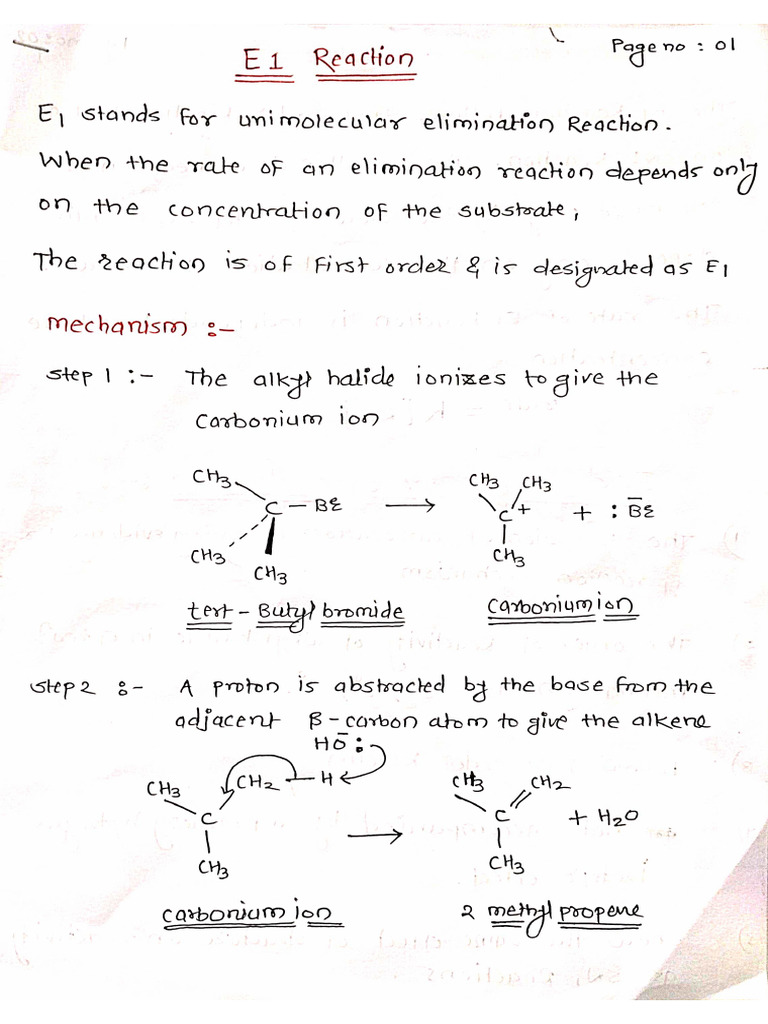 Page no : 01
E1 Reaction
E1 stands for unimolecular elimination Reaction.
When the rate of an elimination reaction depends only
on the concentration of the substrate,
The reaction is of first order & is designated as E1
mechanism :-
step 1 :- The alkyl halide ionizes to give the
carbonium ion
CH3 CH3 CH3
C - Br → C+ + : B̄r
CH3 CH3 CH3
tert - Butyl bromide carbonium ion
step 2 :- A proton is abstracted by the base from the
adjacent β - carbon atom to give the alkene
HŌ :
CH3 CH2 - H CH3 CH2
C → C + H2O
CH3 CH3
carbonium ion 2 methyl propene